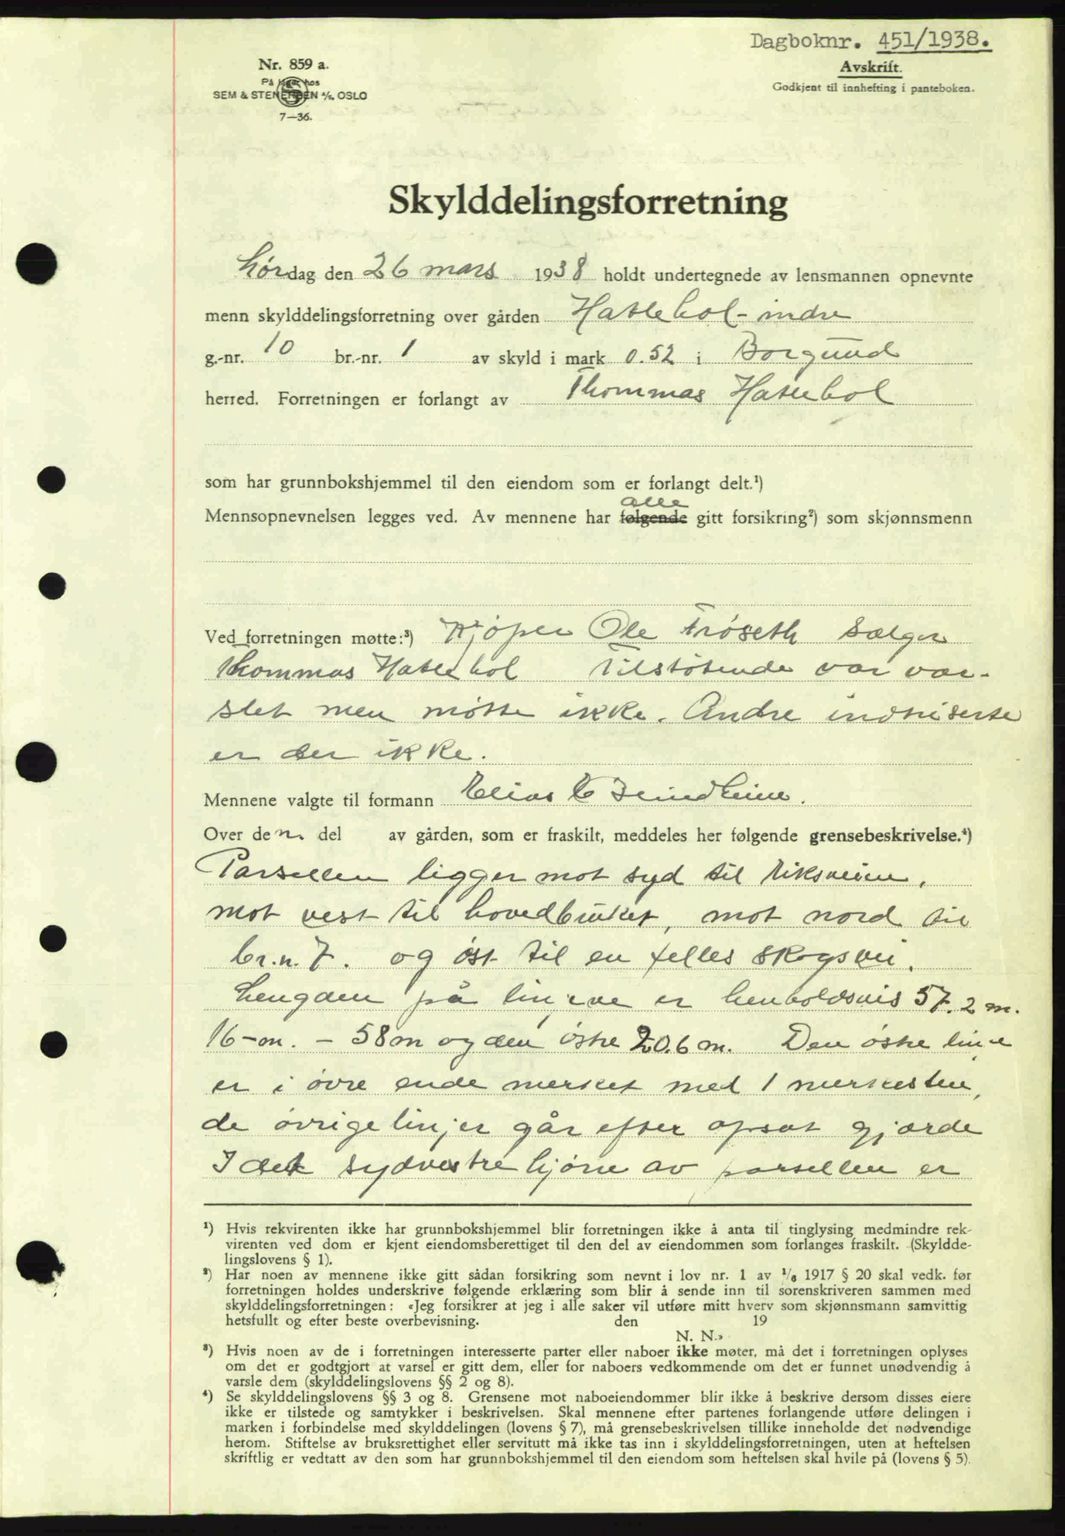 Dagboknr. 451/1938.
Avskrift.
Godkjent til innhefting i panteboken.
Nr. 859 a.
På lager hos
SEM & STENERSEN A/S, OSLO
7—36.
Skylddelingsforretning
Lørdag den 26 mars 1938 holdt undertegnede av lensmannen opnevnte
menn skylddelingsforretning over gården Hatlehol-indre
g.-nr. 10 br.-nr. 1 av skyld i mark 0.52 i Borgund
herred. Forretningen er forlangt av Thommas Hatlehol
som har grunnbokshjemmel til den eiendom som er forlangt delt.¹)
alle
Mennsopnevnelsen legges ved. Av mennene har følgende gitt forsikring²) som skjønnsmenn
Ved forretningen møtte:³) Kjøper Ole Frøseth Sælger
Thommas Hatlehol Tilstøtende var var-
slet men møtte ikke. Andre intriserte
er der ikke.
Mennene valgte til formann Elias
Over den del av gården, som er fraskilt, meddeles her følgende grensebeskrivelse.⁴)
Parsellen ligger mot syd til riksveien,
mot vest til hovedbruket, mot nord til
br.n. 7. og øst til en felles skogsvei.
Lengden på linjene er henholdsvis 57.2 m.
16-m. - 58 m og den østre 20.6 m. Den østre linje
er i øvre ende merket med 1 merkesten,
de øvrige linjer går efter opsat gjærde
I det sydvestre hjørne av parsellen er
¹) Hvis rekvirenten ikke har grunnbokshjemmel blir forretningen ikke å anta til tinglysing medmindre rek-
virenten ved dom er kjent eiendomsberettiget til den del av eiendommen som forlanges fraskilt. (Skyldde-
lingslovens § 1).
²) Har noen av mennene ikke gitt sådan forsikring som nevnt i lov nr. 1 av 1/6 1917 § 20 skal vedk. før
forretningen holdes underskrive følgende erklæring som blir å sende inn til sorenskriveren sammen med
skylddelingsforretningen: «Jeg forsikrer at jeg i alle saker vil utføre mitt hverv som skjønnsmann samvittig
hetsfullt og efter beste overbevisning. den 19
N. N.»
³) Hvis noen av de i forretningen interesserte parter eller naboer ikke møter, må det i forretningen oplyses
om det er godtgjort at varsel er gitt dem, eller for naboers vedkommende om det er funnet unødvendig å
varsle dem (skylddelingslovens §§ 2 og 8).
⁴) Se skylddelingslovens §§ 3 og 8. Grensene mot naboeiendommer blir ikke å beskrive dersom disses eiere
ikke er tilstede og samtykker i beskrivelsen. Skal mennene efter partenes forlangende utføre delingen i
marken i forbindelse med skylddelingen (lovens § 7), må grensebeskrivelsen tillike inneholde det nødvendige
herom. Stiftelse av bruksrettighet eller servitutt må ikke tas inn i skylddelingsforretningen, uten at heftelsen
skriftlig er vedtatt av den som har grunnbokshjemmel til den eiendom som heftelsen skal hvile på (lovens § 5).